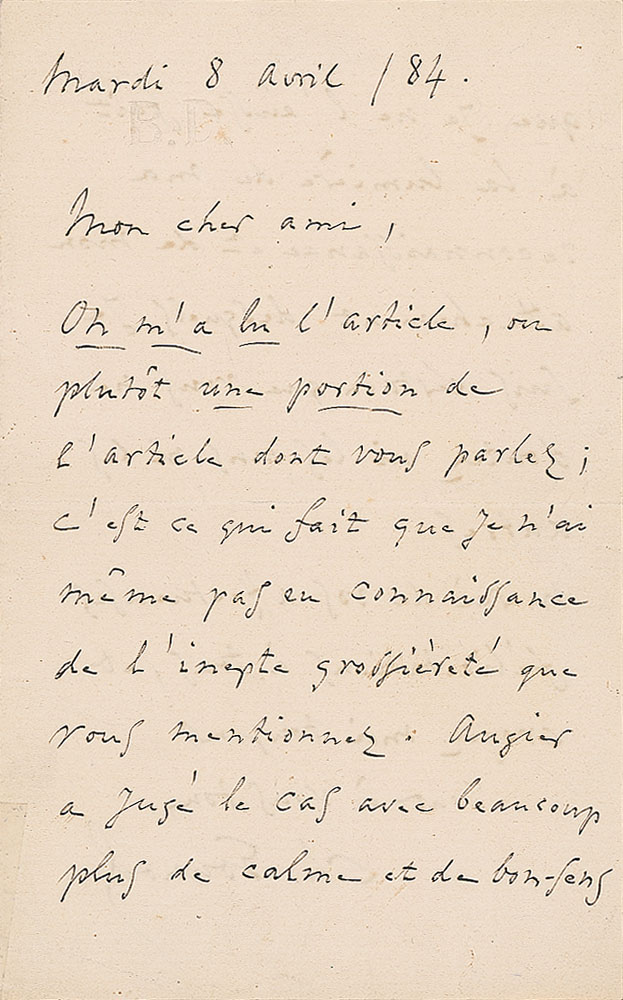 Mardi 8 Avril /84.
Mon cher ami,
On m'a lu l'article, ou
plutôt une portion de
l'article dont vous parlez;
c'est ce qui fait que je n'ai
même pas eu connaissance
de l'inepte grossièreté que
vous mentionnez. Augier
a jugé le cas avec beaucoup
plus de calme et de bon-sens